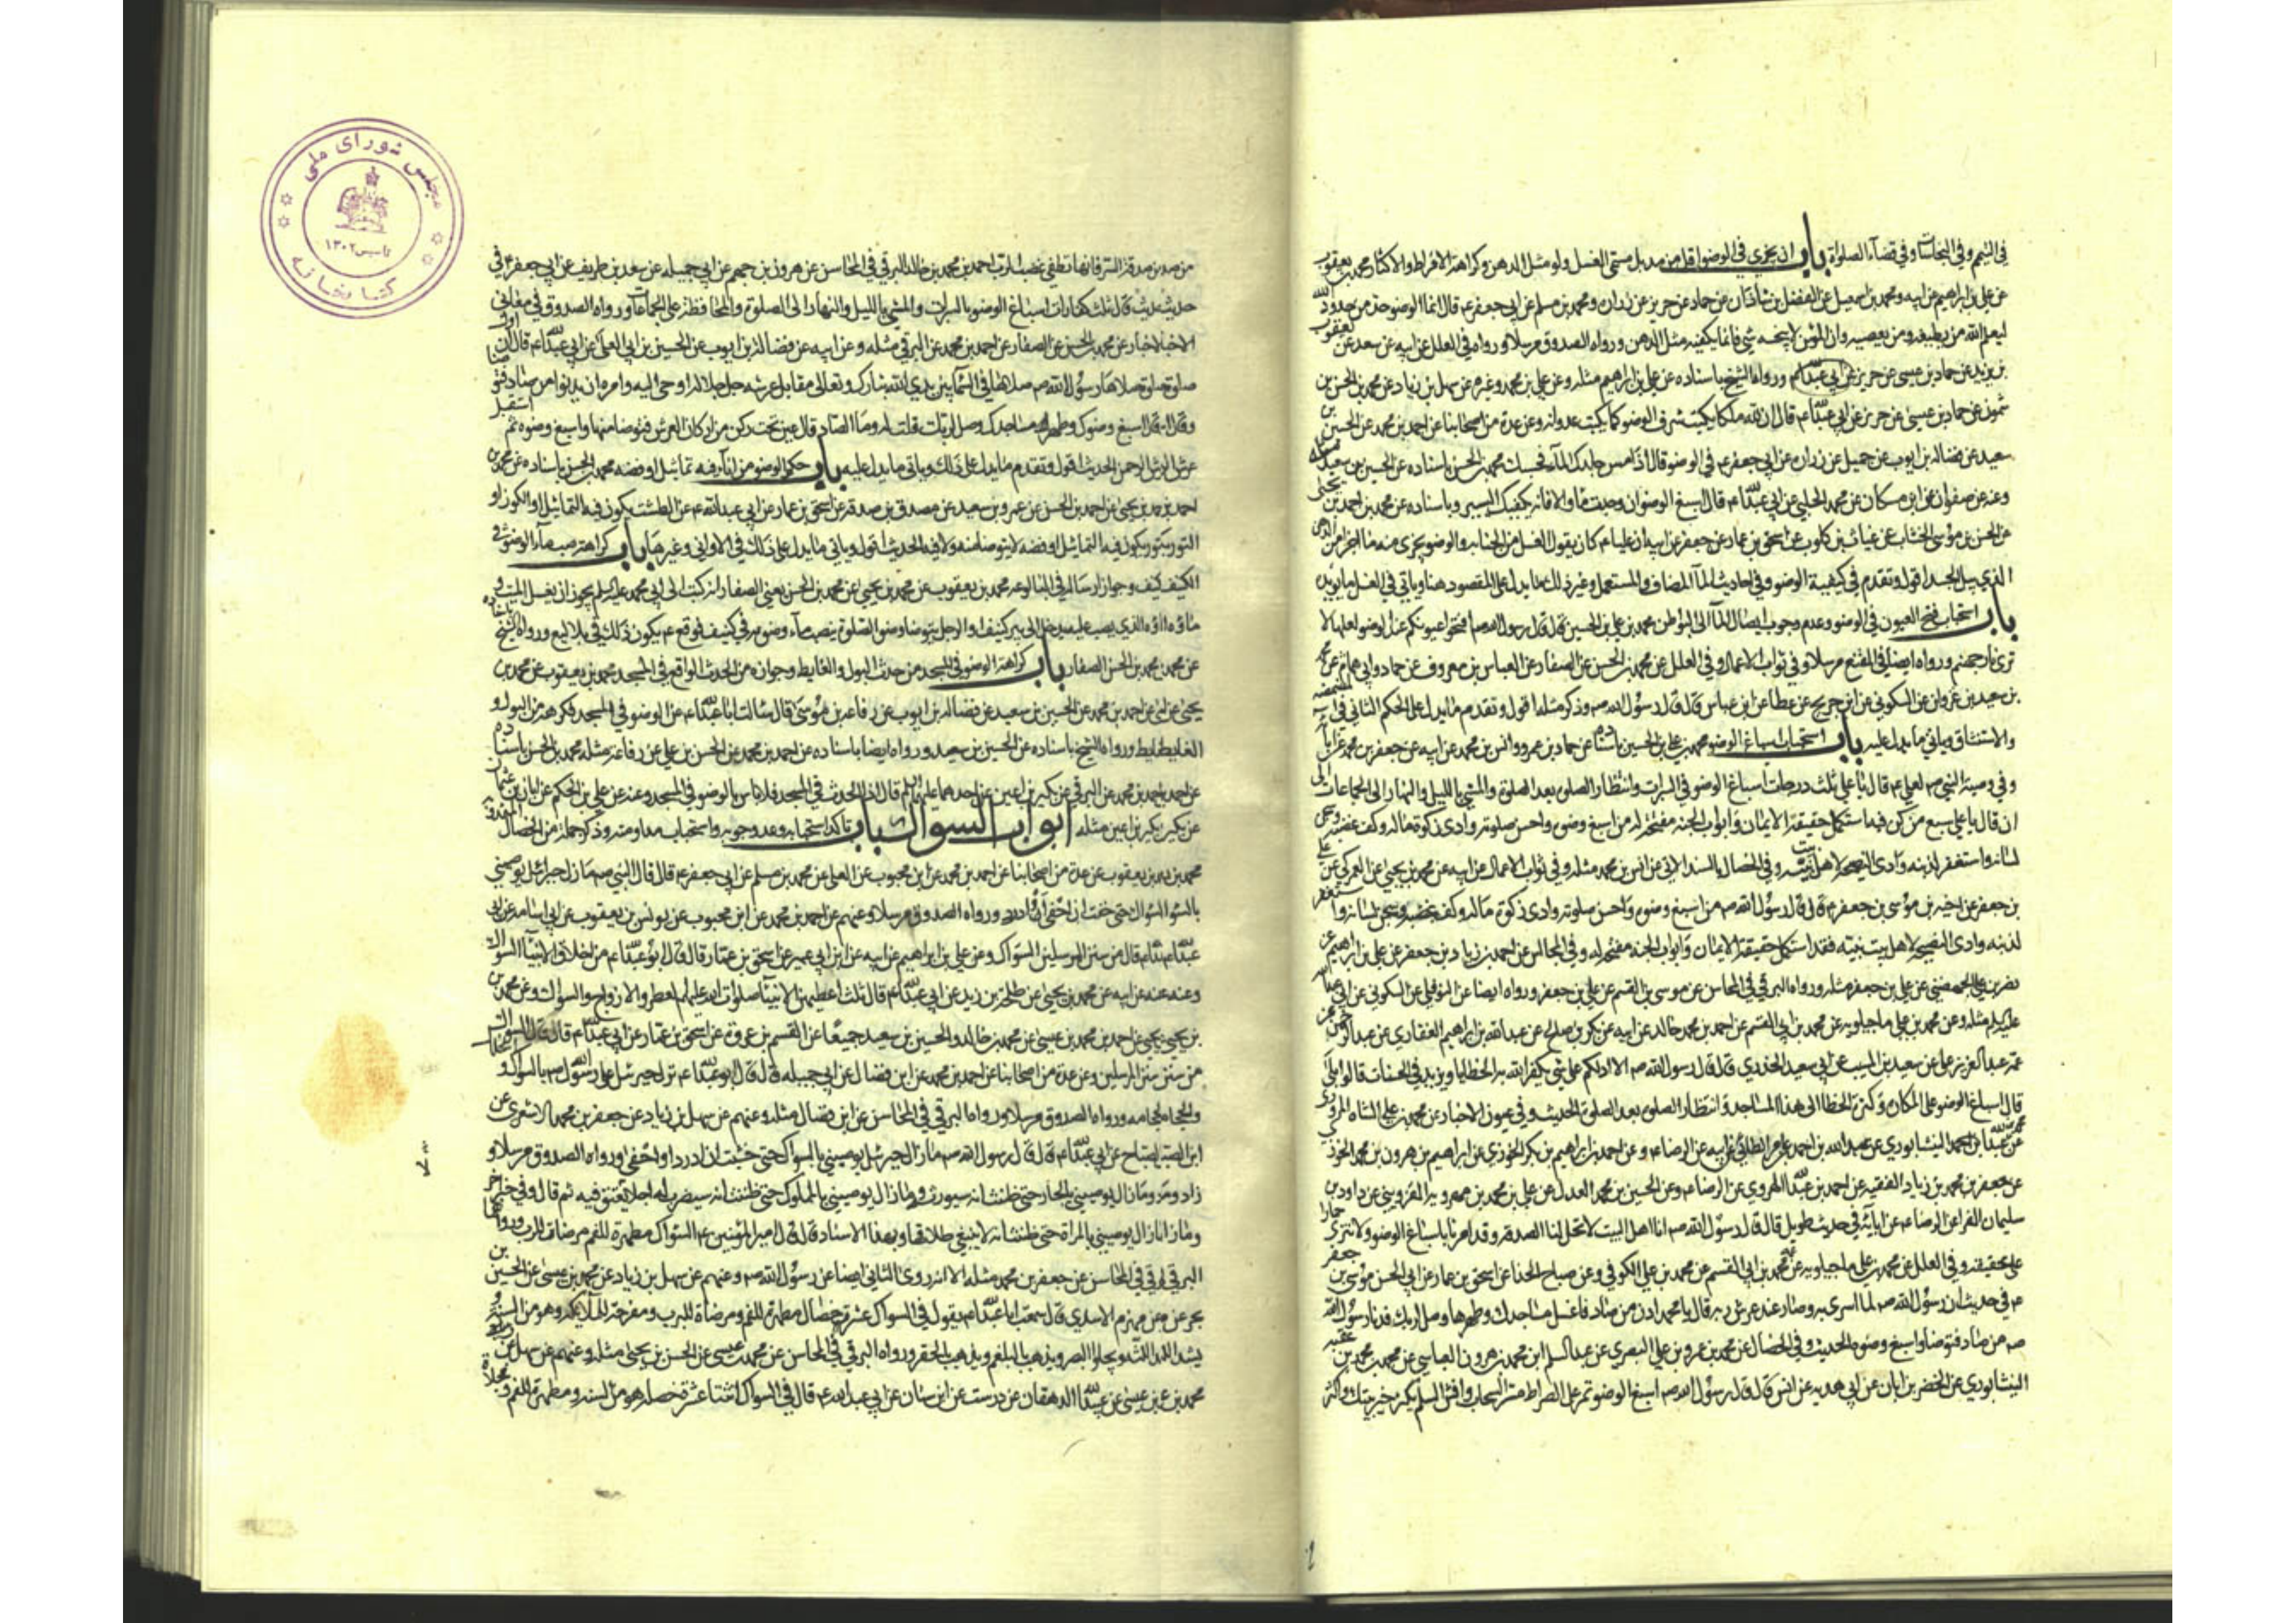 في التيمم وفي النجاسات وفي قضاء الصلوات باب انه يجزي في الوضوء اقل من مد بل مسمى الغسل ولو مثل الدهن وكراهة الافراط والاكثار محمد بن يعقوب
عن علي بن ابراهيم عن ابيه ومحمد بن اسمعيل عن الفضل بن شاذان عن حماد عن حريز عن زرارة ومحمد بن مسلم عن ابي جعفر ع قال انما الوضوء حد من حدود الله
ليعلم الله من يطيعه ومن يعصيه وان المؤمن لا ينجسه شي فانما يكفيه مثل الدهن ورواه الصدوق مرسلا ورواه في العلل عن ابيه عن سعد عن يعقوب
بن يزيد عن حماد بن عيسى عن حريز عن ابي عبدالله ع ورواه الشيخ باسناده عن علي بن ابراهيم مثله وعن علي بن محمد وغيره عن سهل بن زياد عن محمد بن الحسن بن
شمون عن حماد بن عيسى عن حريز عن ابي عبدالله ع قال ان لله ملكا يكتب سرف الوضوء كما يكتب عدوانه وعن عدة من اصحابنا عن احمد بن محمد عن الحسين بن
سعيد عن فضالة بن ايوب عن جميل عن زرارة عن ابي جعفر ع في الوضوء قال اذا مس جلدك الماء فحسبك محمد بن الحسن باسناده عن الحسين بن سعيد مثله
وعنه عن صفوان عن ابن مسكان عن محمد الحلبي عن ابي عبدالله ع قال اسبغ الوضوء ان وجدت ماء والا فانه يكفيك اليسير وباسناده عن محمد بن احمد بن يحيى
عن الحسن بن موسى الخشاب عن غياث بن كلوب عن اسحق بن عمار عن جعفر عن ابيه ان عليا ع كان يقول الغسل من الجنابة والوضوء يجزي منه ما اجزا من الدهن
الذي يبل الجسد اقول وتقدم في كيفية الوضوء وفي احاديث الماء المضاف والمستعمل وغير ذلك ما يدل على المقصود هنا وياتي في الغسل ما يؤيده
باب استحباب فتح العيون في الوضوء وعدم وجوب ايصال الماء الى البواطن محمد بن علي بن الحسين قال قال رسول الله ص افتحوا عيونكم عند الوضوء لعلها لا
ترى نار جهنم ورواه ايضا في المقنع مرسلا وفي ثواب الاعمال وفي العلل عن محمد بن الحسن عن الصفار عن العباس بن معروف عن حماد وابي همام عن محمد
بن سعيد بن غزوان عن السكوني عن ابن جريج عن عطا عن ابن عباس قال قال رسول الله ص وذكر مثله اقول وتقدم ما يدل على الحكم الثاني في المضمضة
والاستنشاق وياتي ما يدل عليه باب استحباب اسباغ الوضوء محمد بن علي بن الحسين باسناده عن حماد بن عمرو وانس بن محمد عن ابيه عن جعفر بن محمد عن ابائه
وفي وصية النبي ص لعلي ع قال يا علي ثلث درجات اسباغ الوضوء في السبرات وانتظار الصلوة بعد الصلوة والمشي بالليل والنهار الى الجماعات الى
ان قال يا علي سبع من كن فيه استكمل حقيقة الايمان وابواب الجنة مفتحة له من اسبغ وضوءه واحسن صلوته وادى زكوة ماله وكف غضبه وسجن
لسانه واستغفر لذنبه وادى النصيحة لاهل بيت نبيه وفي الخصال بالسند الاتي عن انس بن محمد مثله وفي ثواب الاعمال عن ابيه عن محمد بن يحيى عن العمركي عن علي
بن جعفر عن اخيه موسى بن جعفر ع قال قال رسول الله ص من اسبغ وضوءه واحسن صلوته وادى زكوة ماله وكف غضبه وسجن لسانه واستغفر
لذنبه وادى النصيحة لاهل بيت نبيه فقد استكمل حقيقة الايمان وابواب الجنة مفتحة له وفي المجالس عن احمد بن زياد بن جعفر عن علي بن ابراهيم عن
عن علي بن جعفر مثله ورواه البرقي في المحاسن عن موسى بن القسم عن علي بن جعفر ورواه ايضا عن النوفلي عن السكوني عن ابي عبدالله
عليه السلم مثله وعن محمد بن علي ماجيلويه عن محمد بن ابي القسم عن احمد بن محمد خالد عن ابيه عن بكر بن صالح عن عبدالله بن ابراهيم الغفاري عن عبدالرحمن عن
عمه عبدالعزيز بن علي عن سعيد بن المسيب عن ابي سعيد الخدري قال قال رسول الله ص الا ادلكم على شي يكفر الله به الخطايا ويزيد في الحسنات قالوا بلى
قال اسباغ الوضوء على المكاره وكثرة الخطا الى هذه المساجد وانتظار الصلوة بعد الصلوة الحديث وفي عيون الاخبار عن محمد بن علي الشاه المروروذي
عن النيشابوري عن عبدالله بن احمد بن عامر الطائي عن ابيه عن الرضا ع وعن احمد بن ابراهيم بن بكر الخوزي عن ابراهيم بن هرون بن محمد الخوزي
عن جعفر بن محمد بن زياد الفقيه عن احمد بن عبدالله الهروي عن الرضا ع وعن الحسين بن محمد العدل عن علي بن محمد بن مهرويه القزويني عن داود بن
سليمان الفرا عن الرضا ع عن ابائه في حديث طويل قال قال رسول الله ص انا اهل البيت لا تحل لنا الصدقة وقد امرنا باسباغ الوضوء ولا ننزي حمارا
على عتيقة وفي العلل عن محمد بن علي ماجيلويه عن محمد بن ابي القسم عن محمد بن علي الكوفي وعن صباح الحذا عن اسحق بن عمار عن ابي الحسن موسى بن جعفر
ع في حديث ان رسول الله ص لما اسري به وصار عند عرش ربه قال يا محمد ادن من صاد فاغسل مساجدك وطهرها وصل لربك فدنا رسول الله
ص من صاد فتوضا واسبغ وضوءه الحديث وفي الخصال عن محمد بن عمرو بن علي البصري عن عبدالسلم ابن محمد بن هرون العباسي عن محمد بن محمد بن عقبة
النيشابوري عن الخضر بن ابان عن ابي هدبه عن انس قال قال رسول الله ص اسبغ الوضوء تمر على الصراط مر السحاب وافش السلم يكثر خير بيتك واكثر
من صدقة السر فانها تطفي غضب الرب احمد بن محمد بن خالد البرقي في المحاسن عن هرون بن جهم عن ابي جميله عن سعد بن طريف عن ابي جعفر ع في
حديث قال ثلث كفارات اسباغ الوضوء بالسبرات والمشي بالليل والنهار الى الصلوة والمحافظة على الجماعات ورواه الصدوق في معاني
الاخبار عن محمد بن الحسن عن الصفار عن احمد بن محمد عن البرقي مثله وعن ابيه عن فضالة بن ايوب عن الحسين بن ابي العلا عن ابي عبدالله ع قال ان اول
صلوة صلاها رسول الله ص صلاها في السماء بين يدي الله تبارك وتعالى مقابل عرشه جل جلاله اوحى اليه وامره ان يدنو من صاد فتوضا
وقال اسبغ وضوءك وطهر مساجدك وصل لربك قلت له وما الصاد قال عين تحت ركن من اركان العرش فتوضا منها واسبغ وضوءه ثم استقبل
عرش الرحمن الحديث اقول وتقدم ما يدل على ذلك وياتي ما يدل عليه باب حكم الوضوء من اناء فيه تماثيل او فضه محمد بن الحسن باسناده عن محمد بن
احمد بن يحيى عن احمد بن الحسن عن عمرو بن سعيد عن مصدق بن صدقة عن اسحق بن عمار عن ابي عبدالله ع عن الطشت يكون فيه التماثيل او الكوز او
التور يكون فيه التماثيل او فضة لا يتوضا منه ولا فيه الحديث اقول وياتي ما يدل على ذلك في الاواني وغيرها باب كراهة صب ماء الوضوء في
الكنيف وجواز ارساله في البالوعه محمد بن يعقوب عن محمد بن يحيى عن محمد بن الحسن يعني الصفار انه كتب الى ابي محمد عليه السلم يجوز ان يغسل الميت و
ماؤه الذي يصب عليه يدخل الى بئر كنيف او الرجل يتوضا وضوء الصلوة يصب ماء وضوئه في كنيف فوقع ع يكون ذلك في بلاليع ورواه الشيخ باسناده
عن محمد بن الحسن الصفار باب كراهة الوضوء في المسجد من حدث البول والغايط وجوازه من الحدث الواقع في المسجد محمد بن يعقوب عن محمد بن
يحيى عن احمد بن محمد عن الحسين بن سعيد عن فضالة بن ايوب عن رفاعة بن موسى قال سالت ابا عبدالله ع عن الوضوء في المسجد فكرهه من البول و
الغايط ورواه الشيخ باسناده عن الحسين بن سعيد ورواه ايضا باسناده عن احمد بن محمد عن الحسن بن علي عن رفاعة مثله محمد بن الحسن باسناده
عن احمد بن محمد عن البرقي عن بكير بن اعين عن احدهما عليهما السلم قال اذا الحدث في المسجد فلا باس بالوضوء في المسجد وعنه عن علي بن الحكم عن ابان بن عثمان
عن بكير بن اعين مثله ابواب السواك باب تاكد استحبابه وعدم وجوبه واستحباب مداومته وذكر جملة من الخصال المندوبة
محمد بن يعقوب عن عدة من اصحابنا عن احمد بن محمد عن ابن محبوب عن العلا عن محمد بن مسلم عن ابي جعفر ع قال قال النبي ص ما زال جبرائيل يوصيني
بالسواك حتى خفت ان احفى او ادرد ورواه الصدوق مرسلا وعنهم عن احمد بن محمد عن ابن محبوب عن يونس بن يعقوب عن ابي اسامة عن ابي
عبدالله ع قال من سنن المرسلين السواك وعن علي بن ابراهيم عن ابيه عن ابن ابي عمير عن اسحق بن عمار قال قال ابو عبدالله ع من اخلاق الانبياء السواك
وعنه عن ابيه عن محمد بن يحيى عن طلحة بن زيد عن ابي عبدالله ع قال ثلث اعطيهن الانبياء صلوات الله عليهم العطر والازواج والسواك وعن محمد بن
يحيى عن احمد بن محمد بن عيسى عن محمد بن خالد والحسين بن سعيد جميعا عن القسم بن عروة عن اسحق بن عمار عن ابي عبدالله ع قال السواك
من سنن المرسلين وعن عدة من اصحابنا عن احمد بن محمد عن ابن فضال عن ابي جميله قال قال ابو عبدالله ع نزل جبرئيل على رسول الله ص بالسواك و الخلال
والحجامه ورواه الصدوق مرسلا ورواه البرقي في المحاسن عن ابن فضال مثله وعنهم عن سهل بن زياد عن جعفر بن محمد الاشعري عن
ابن القداح عن ابي عبدالله ع قال قال رسول الله ص ما زال جبرئيل يوصيني بالسواك حتى خشيت ان ادرد او احفى ورواه الصدوق مرسلا و
زاد وما زال يوصيني بالجار حتى ظننت انه سيورثه وما زال يوصيني بالمملوك حتى ظننت انه سيضرب له اجلا يعتق فيه ثم قال وفي خبر اخر
وما زال يوصيني بالمراة حتى ظننت انه لا ينبغي طلاقها وبهذا الاسناد قال قال امير المؤمنين ع السواك مطهرة للفم مرضاة للرب ورواهما
البرقي في المحاسن عن جعفر بن محمد مثله الا انه روى الثاني ايضا عن رسول الله ص وعنهم عن سهل بن زياد عن محمد بن عيسى عن الحسين بن
بحر عن مهزم الاسدي قال سمعت ابا عبدالله ع يقول في السواك عشرة خصال مطهرة للفم ومرضاة للرب ومفرحة للملائكة وهو من السنة و
يشد اللثة ويجلو البصر ويذهب بالبلغم ويذهب بالحفر ورواه البرقي في المحاسن عن محمد بن عيسى عن الحسن بن يحيى مثله وعنهم عن سهل عن
محمد بن عيسى عن عبيدالله الدهقان عن درست عن ابن سنان عن ابي عبدالله ع قال في السواك اثنتا عشرة خصلة هو من السنة ومطهرة للفم و مجلاة
مجلس شورای ملی
تاسیس ۱۳۰۲
کتابخانه